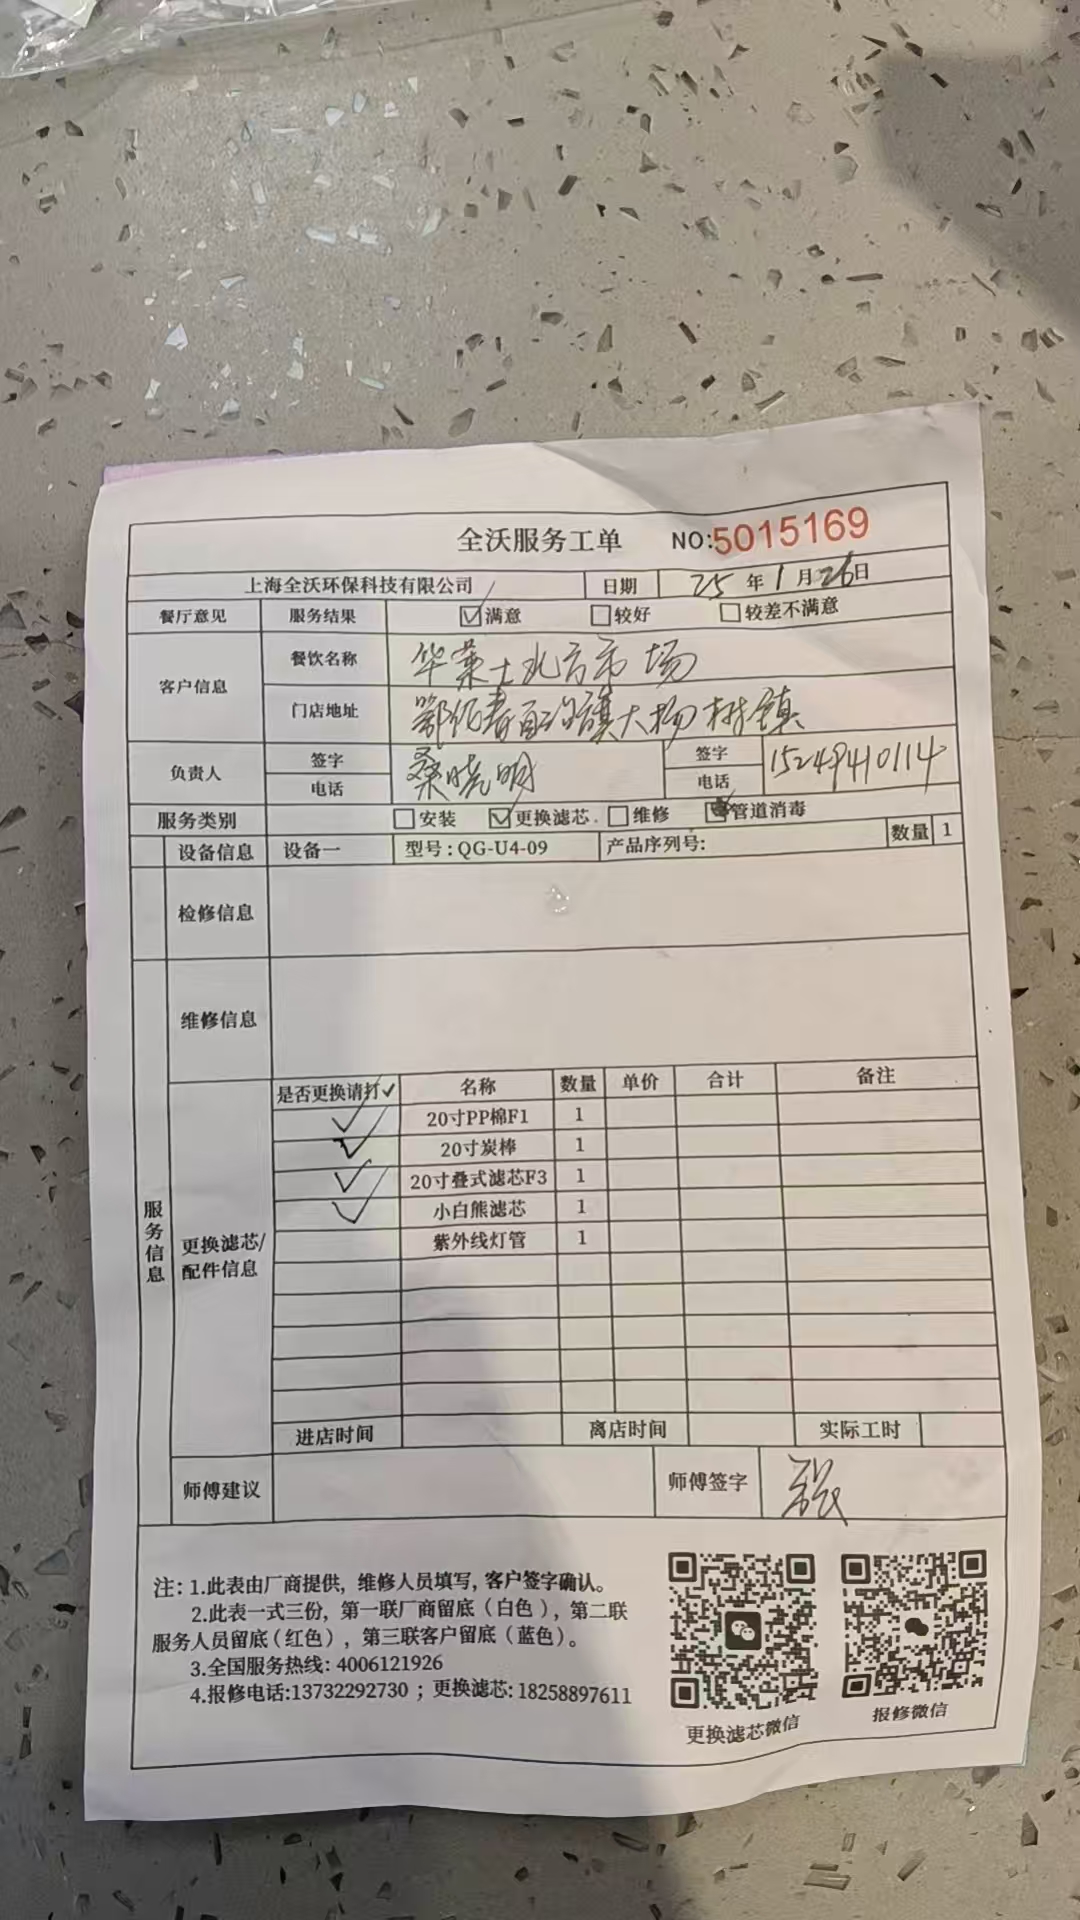 全沃服务工单 NO:5015169
上海全沃环保科技有限公司 日期 25年1月26日
餐厅意见 服务结果 ☑满意 □较好 □较差不满意
客户信息 餐饮名称 华莱士北方市场
门店地址 鄂伦春自治旗大杨树镇
负责人 签字 电话 桑晓明 签字 电话 15249410114
服务类别 □安装 ☑更换滤芯 □维修 管道消毒
设备信息 设备一 型号:QG-U4-09 产品序列号: 数量 1
检修信息
维修信息
服务信息
更换滤芯/配件信息
是否更换请打✓ 名称 数量 单价 合计 备注
✓ 20寸PP棉F1 1
✓ 20寸炭棒 1
✓ 20寸叠式滤芯F3 1
✓ 小白熊滤芯 1
紫外线灯管 1
进店时间 离店时间 实际工时
师傅建议 师傅签字
注:1.此表由厂商提供,维修人员填写,客户签字确认。
2.此表一式三份,第一联厂商留底(白色),第二联
服务人员留底(红色),第三联客户留底(蓝色)。
3.全国服务热线:4006121926
4.报修电话:13732292730;更换滤芯:18258897611
更换滤芯微信 报修微信